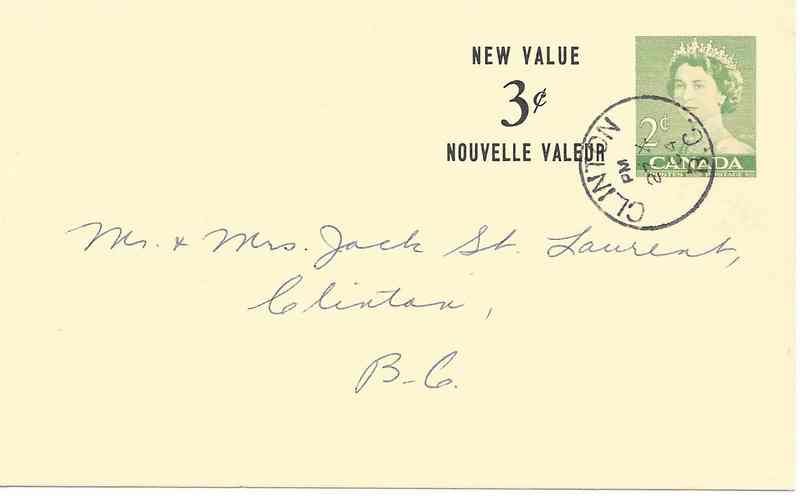 NEW VALUE
3¢
NOUVELLE VALEUR
2¢
CANADA
POSTES POSTAGE
CLINTON
B.C.
PM
Mr. & Mrs. Jack St. Laurent,
Clinton,
B-C.